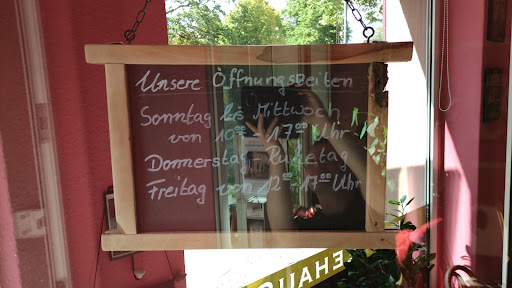 Unsere Öffnungszeiten
Sonntag bis Mittwoch
von 10⁰⁰ - 17⁰⁰ Uhr
Donnerstag - Ruhetag
Freitag von 12⁰⁰ - 17⁰⁰ Uhr